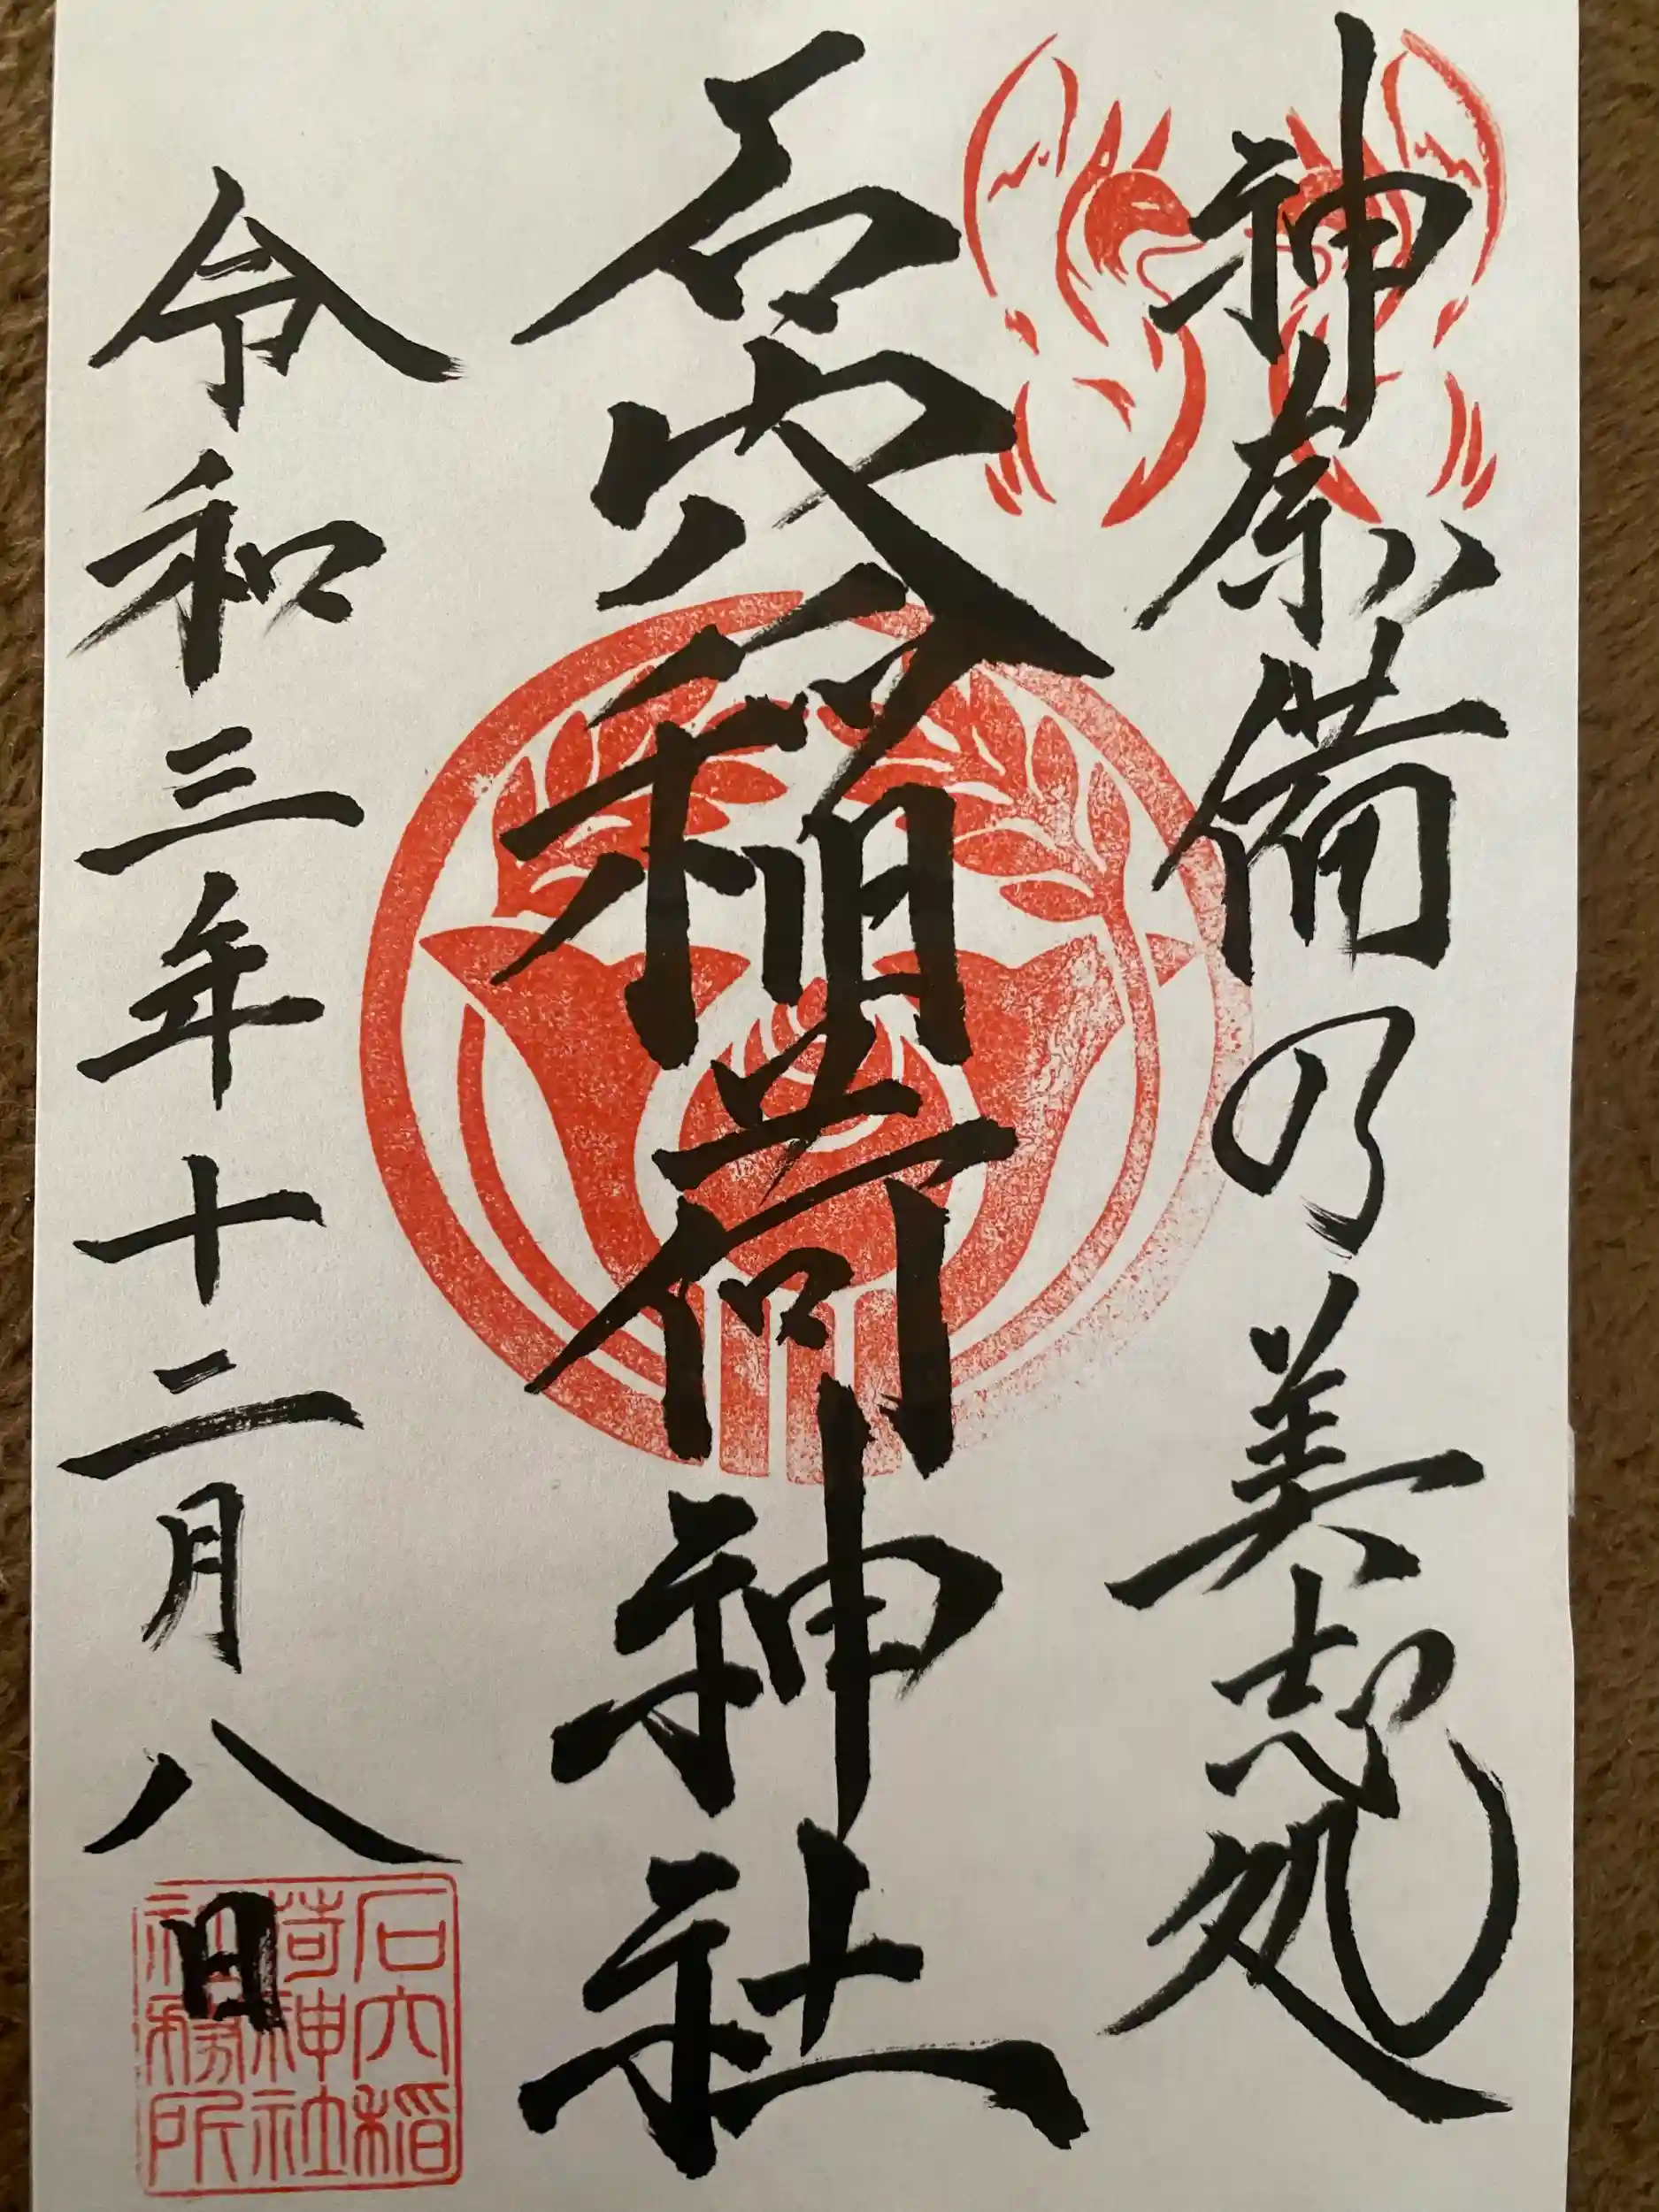 神奈備の美志処
石穴稲荷神社
令和三年十二月八日
石穴稲
荷神社
社務所